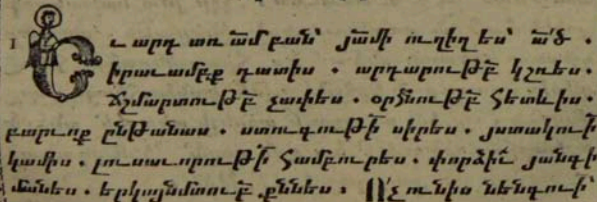 1
Եւ արդ առ ա՞մ բան՝ յա՞մի ուղիղ ես՝ ա՛ծ .
իրաւամբք դատիս . արդարութբ̃ կշռես .
Ճշմարտութբ̃ չափես . օրհնութբ̃ հետևիս .
բարւոք ընթանաս . ստուգութի̃ սիրես . յստակուի̃
կամիս . լուսաւորութի̃ համբուրես . փորձիւ̃ յանգի
մանես . երկայնմտուբ̃ քննես : Ո՛չ ունիս նենգուի̃